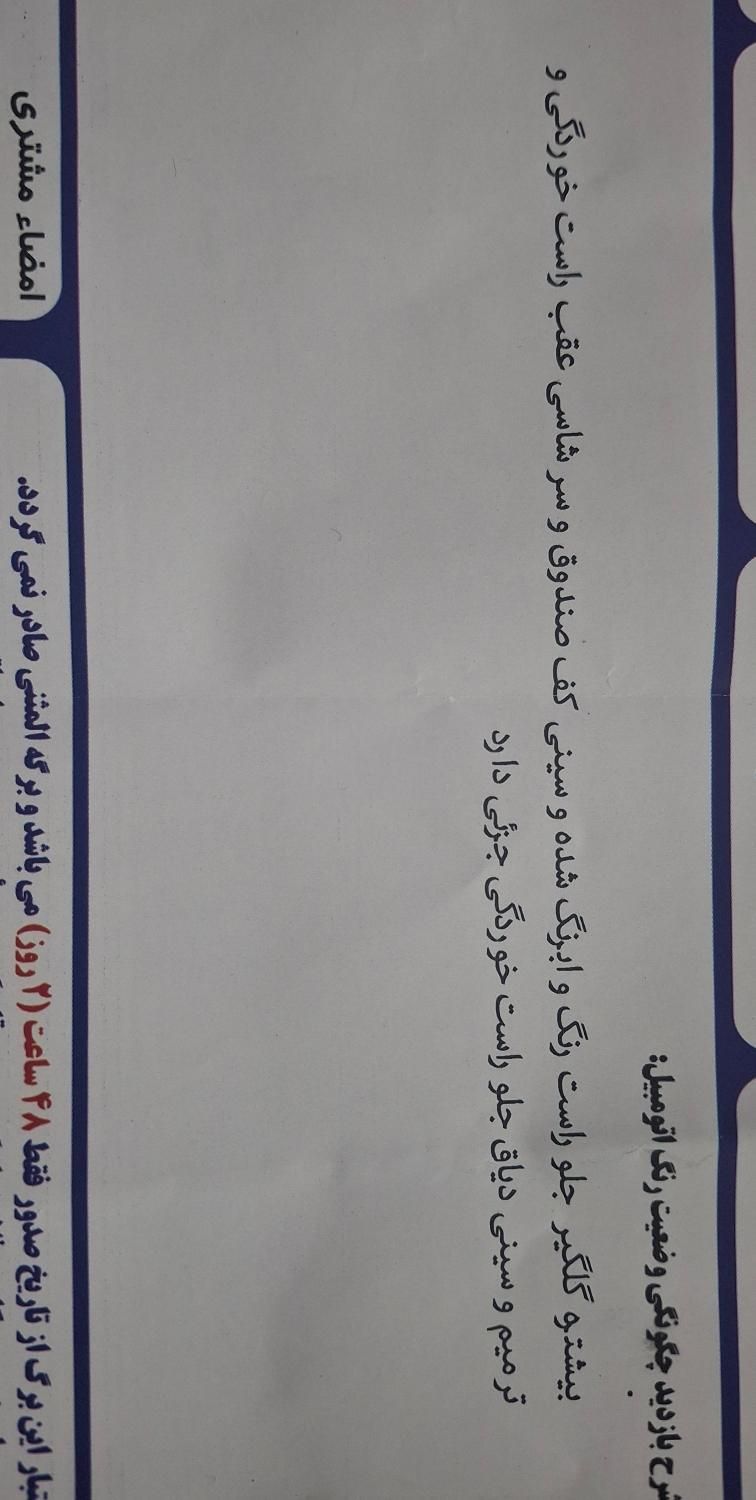 شرح بازدید چگونگی وضعیت رنگ اتومبیل:
بیشترو گلگیر جلو راست رنگ و ابرنگ شده و سینی کف صندوق و سر شاسی عقب راست خوردگی و
ترمیم و سینی دیاق جلو راست خوردگی جزئی دارد
امضاء مشتری
این برگ از تاریخ صدور فقط ۴۸ ساعت (۲ روز) می باشد و برگه المثنی صادر نمی گردد.